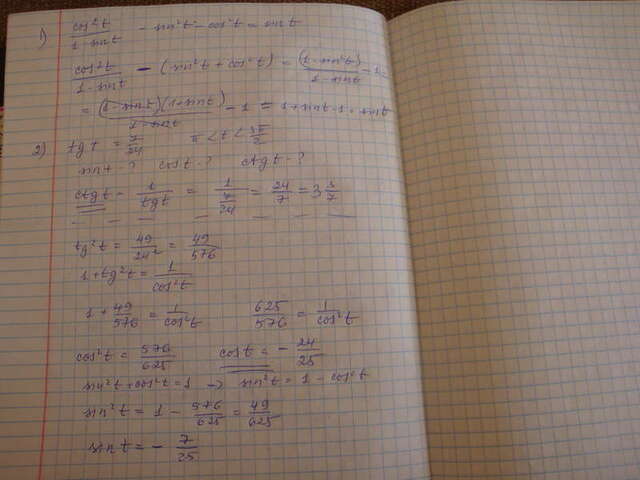 1) cos²t / 1-sint - sin²t - cos²t = sint
cos²t / 1-sint - (sin²t + cos²t) = (1-sin²t) / 1-sint - 1 =
= (1-sint)(1+sint) / 1-sint - 1 = 1+sint-1 = sint
2) tgt = 7/24 π < t < 3π/2
sint-? cost-? ctgt-?
ctgt - 1/tgt = 1 / 7/24 = 24/7 = 3 3/7
tg²t = 49/24² = 49/576
1+tg²t = 1/cos²t
1+ 49/576 = 1/cos²t 625/576 = 1/cos²t
cos²t = 576/625 cost = - 24/25
sin²t+cos²t=1 → sin²t = 1 - cos²t
sin²t = 1 - 576/625 = 49/625
sint = - 7/25